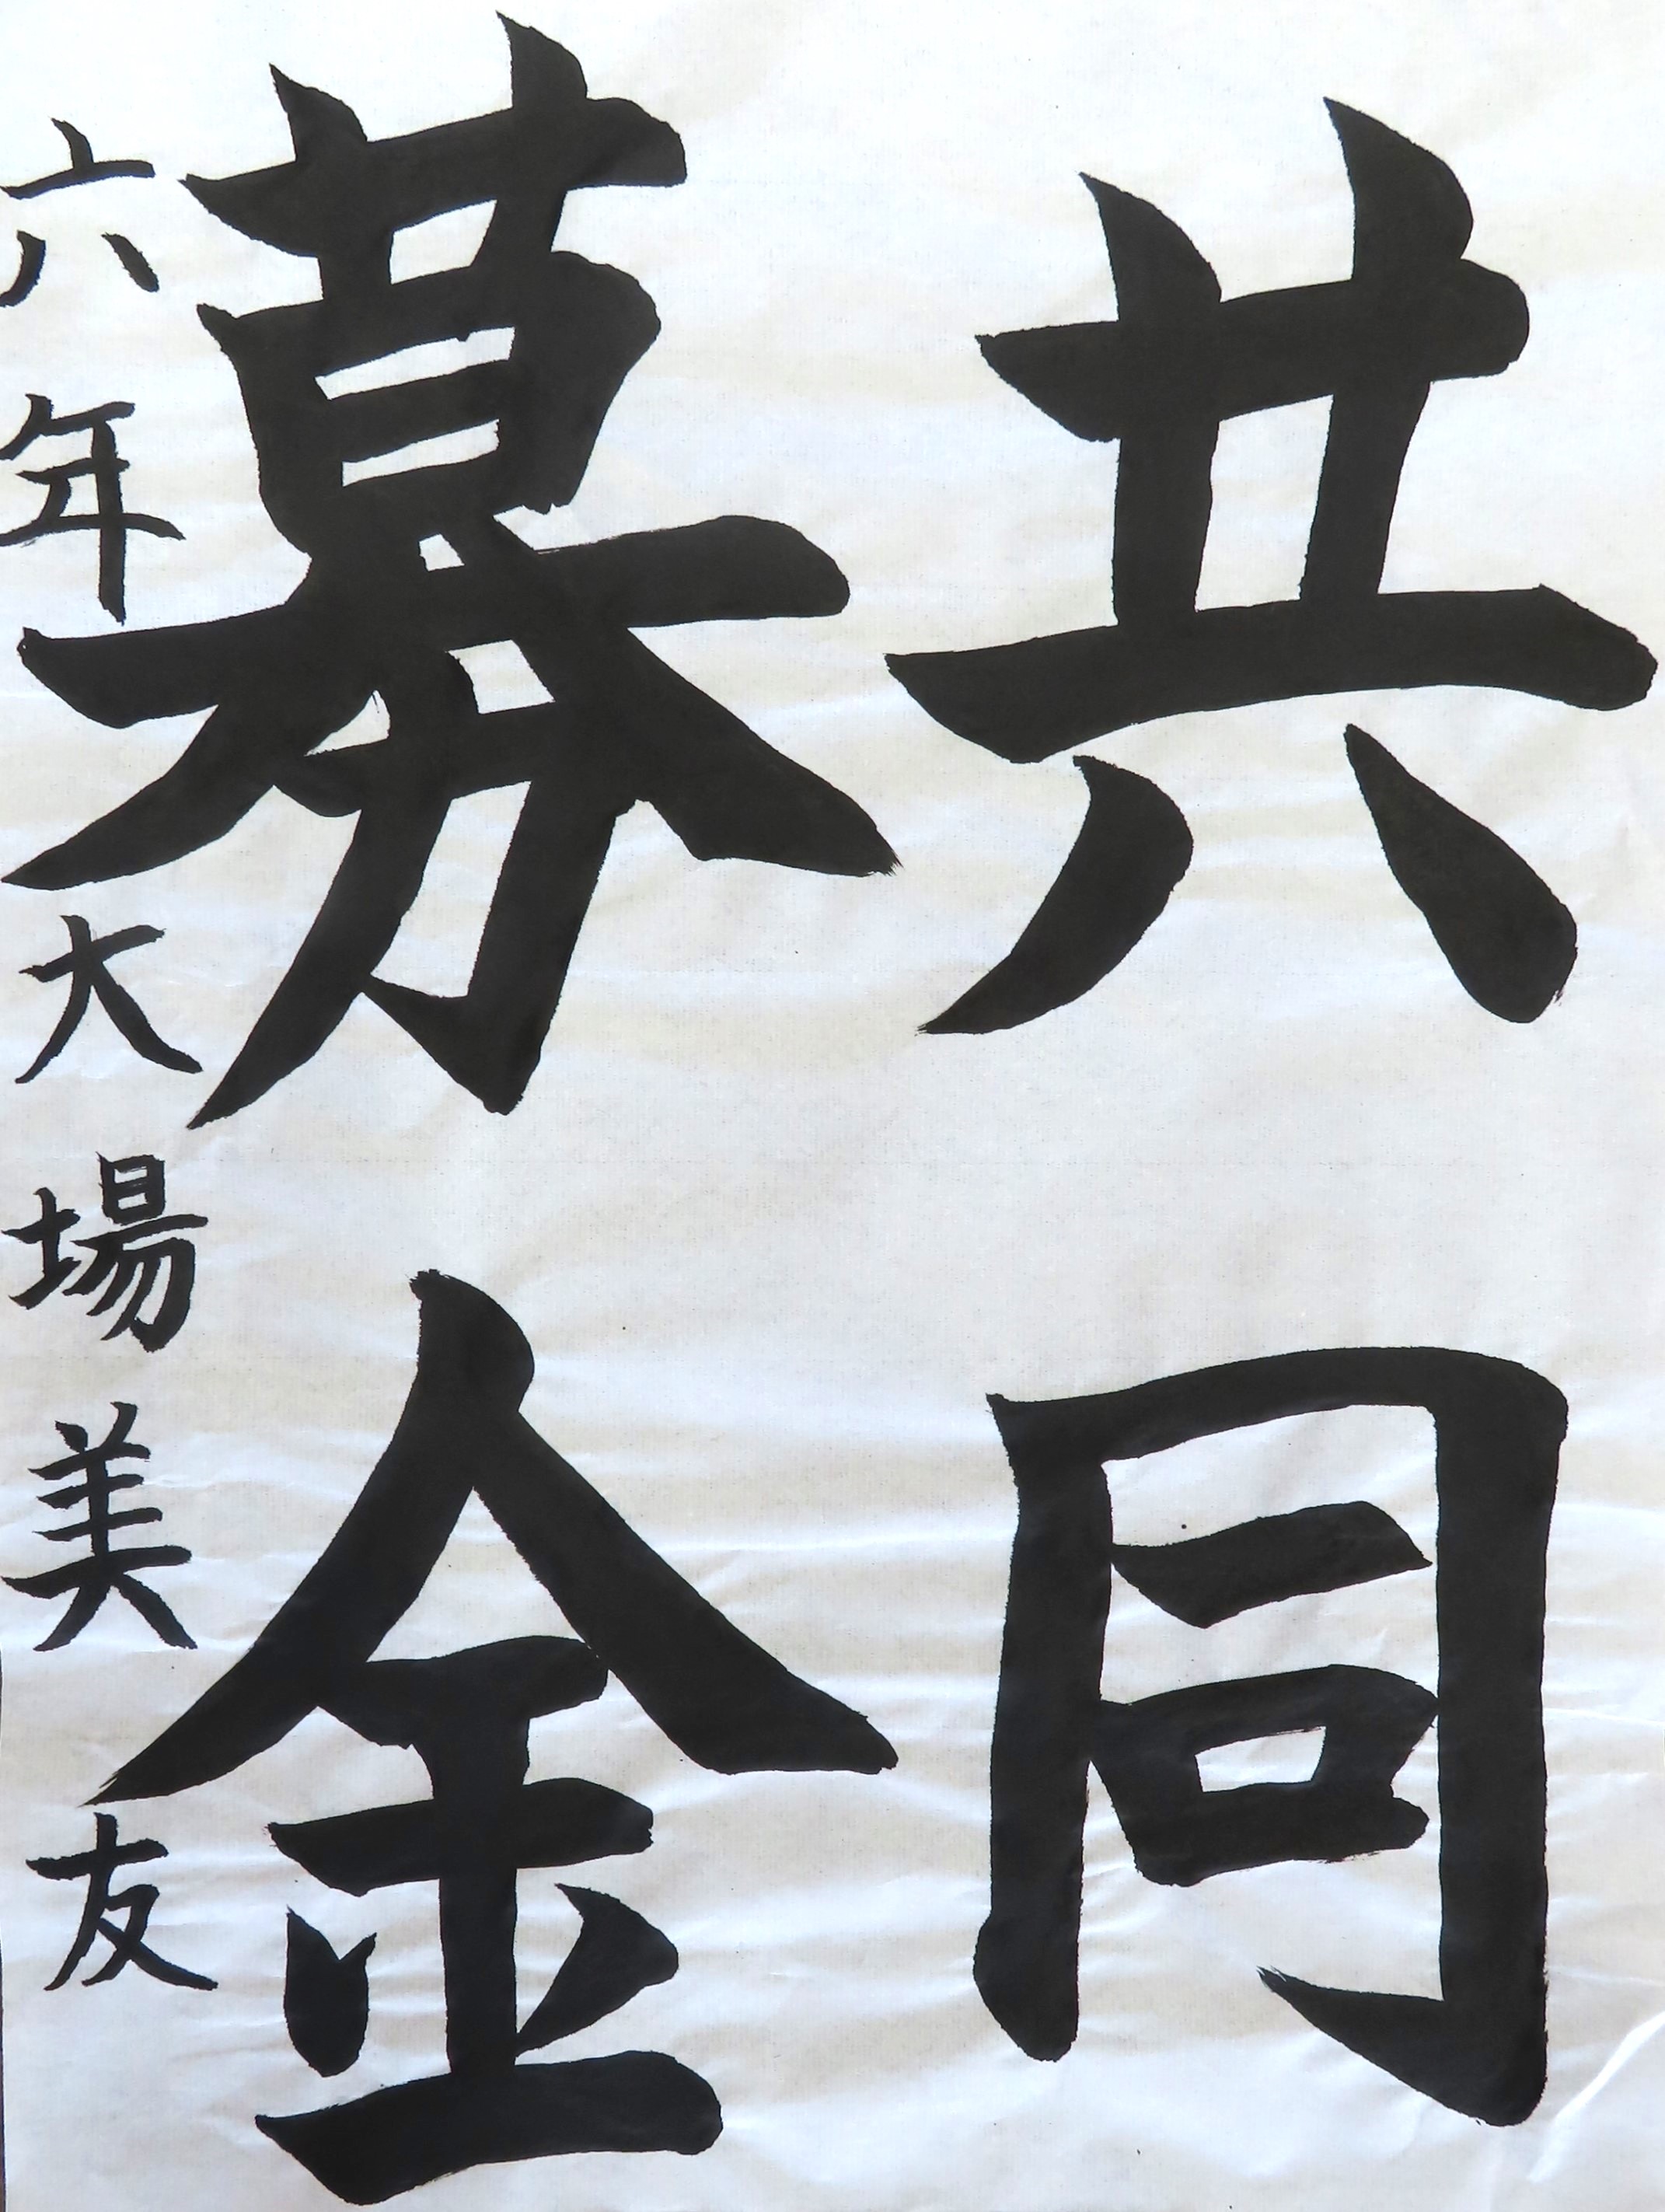 共同
募金
六年大場美友